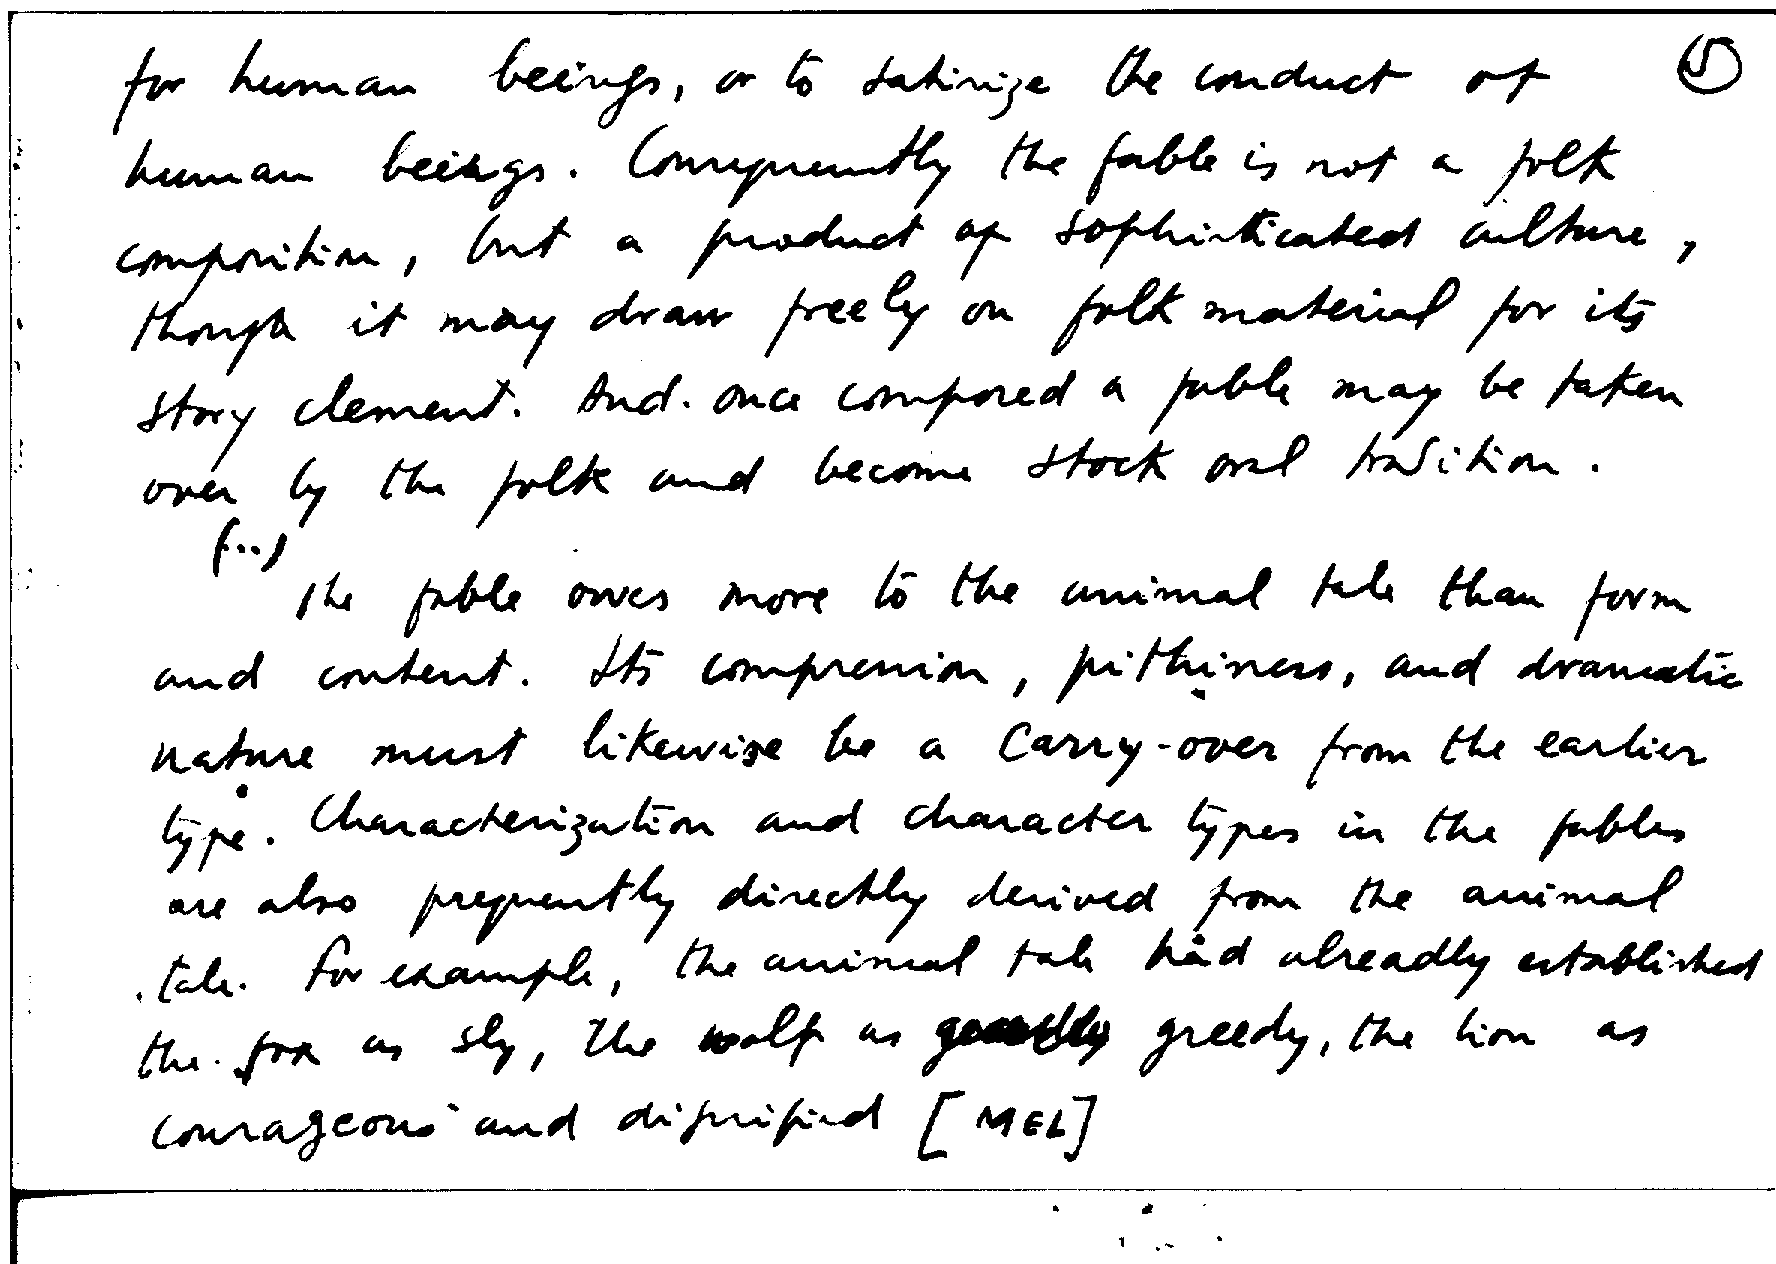 for human beings, or to satirize the conduct of ⑤
human beings. Consequently the fable is not a folk
composition, but a product of sophisticated culture,
though it may draw freely on folk material for its
story element. And once composed a fable may be taken
over by the folk and become stock oral tradition.
(...)
The fable owes more to the animal tale than form
and content. Its compression, pithiness, and dramatic
nature must likewise be a carry-over from the earlier
type. Characterization and character types in the fables
are also frequently directly derived from the animal
tale. For example, the animal tale had alreadly established
the fox as sly, the wolf as greedy, the lion as
courageous and dignified [MEL]